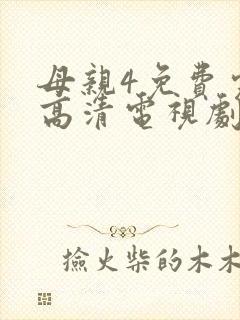 母親4免費
高清電視劇
撿火柴的木木